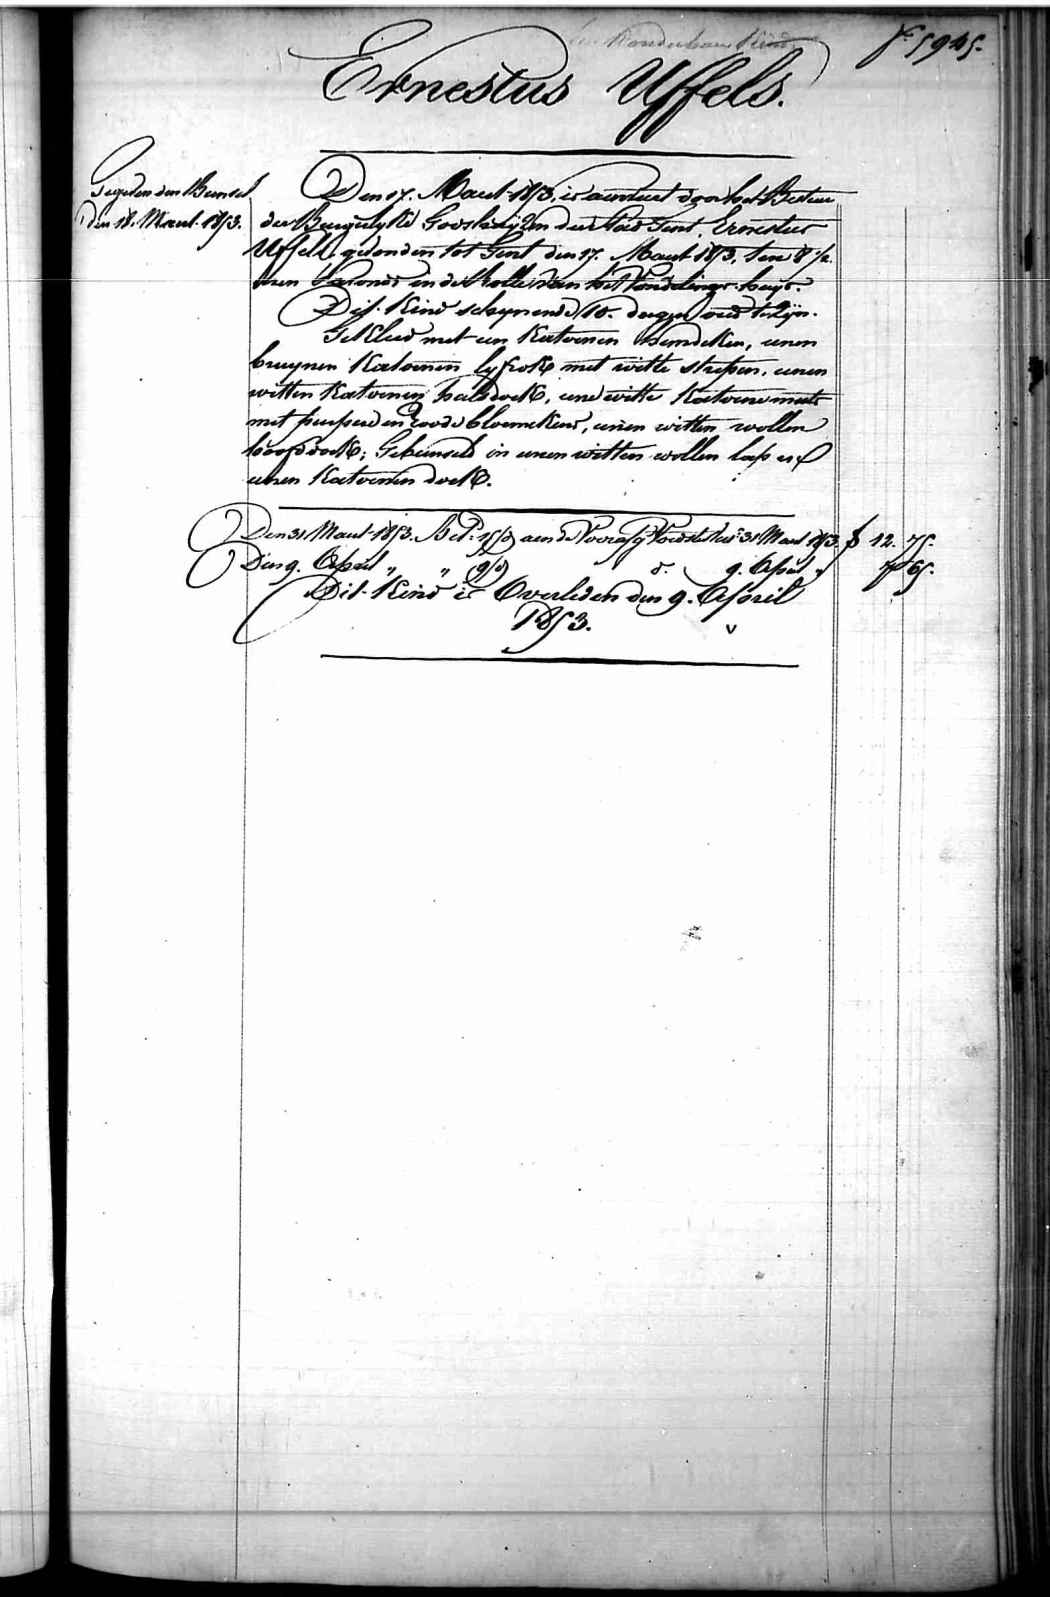 f.° 5945.
Ernestus Uffels.
Gegeven den Bussel
Den 18. Maert 1853.
Den 17. Maert 1853, is aenveert door het Bestuur
der Burgerlyke Godshuyzen der Stad Gent, Ernestus
Uffels gevonden tot Gent den 17. Maert 1853, ten 8 ½
uren 's avonds in de Rolle van het Vondelings-huys.
Dit Kind schynende 10. dagen oud te zyn.
Gekleed met een Katoenen hemdeken, eenen
bruynen Katoenen lyfrok met witte strepen, eenen
witten Katoenen halsdoek, eene witte Katoene muts
met purpere en roode bloemekens, eenen witten wollen
hoofddoek; Gebusseld in eenen witten wollen lap en
eenen Katoenen doek.
Den 31 Maert 1853. Bet. 15/3 aen de Voorafg Voedster tot 31 Maert 1853 f 12. 75.
Den 9. April „ „ 9/3 d.° 9. April „ 7 65.
Dit Kind is Overleden den 9. April
1853.